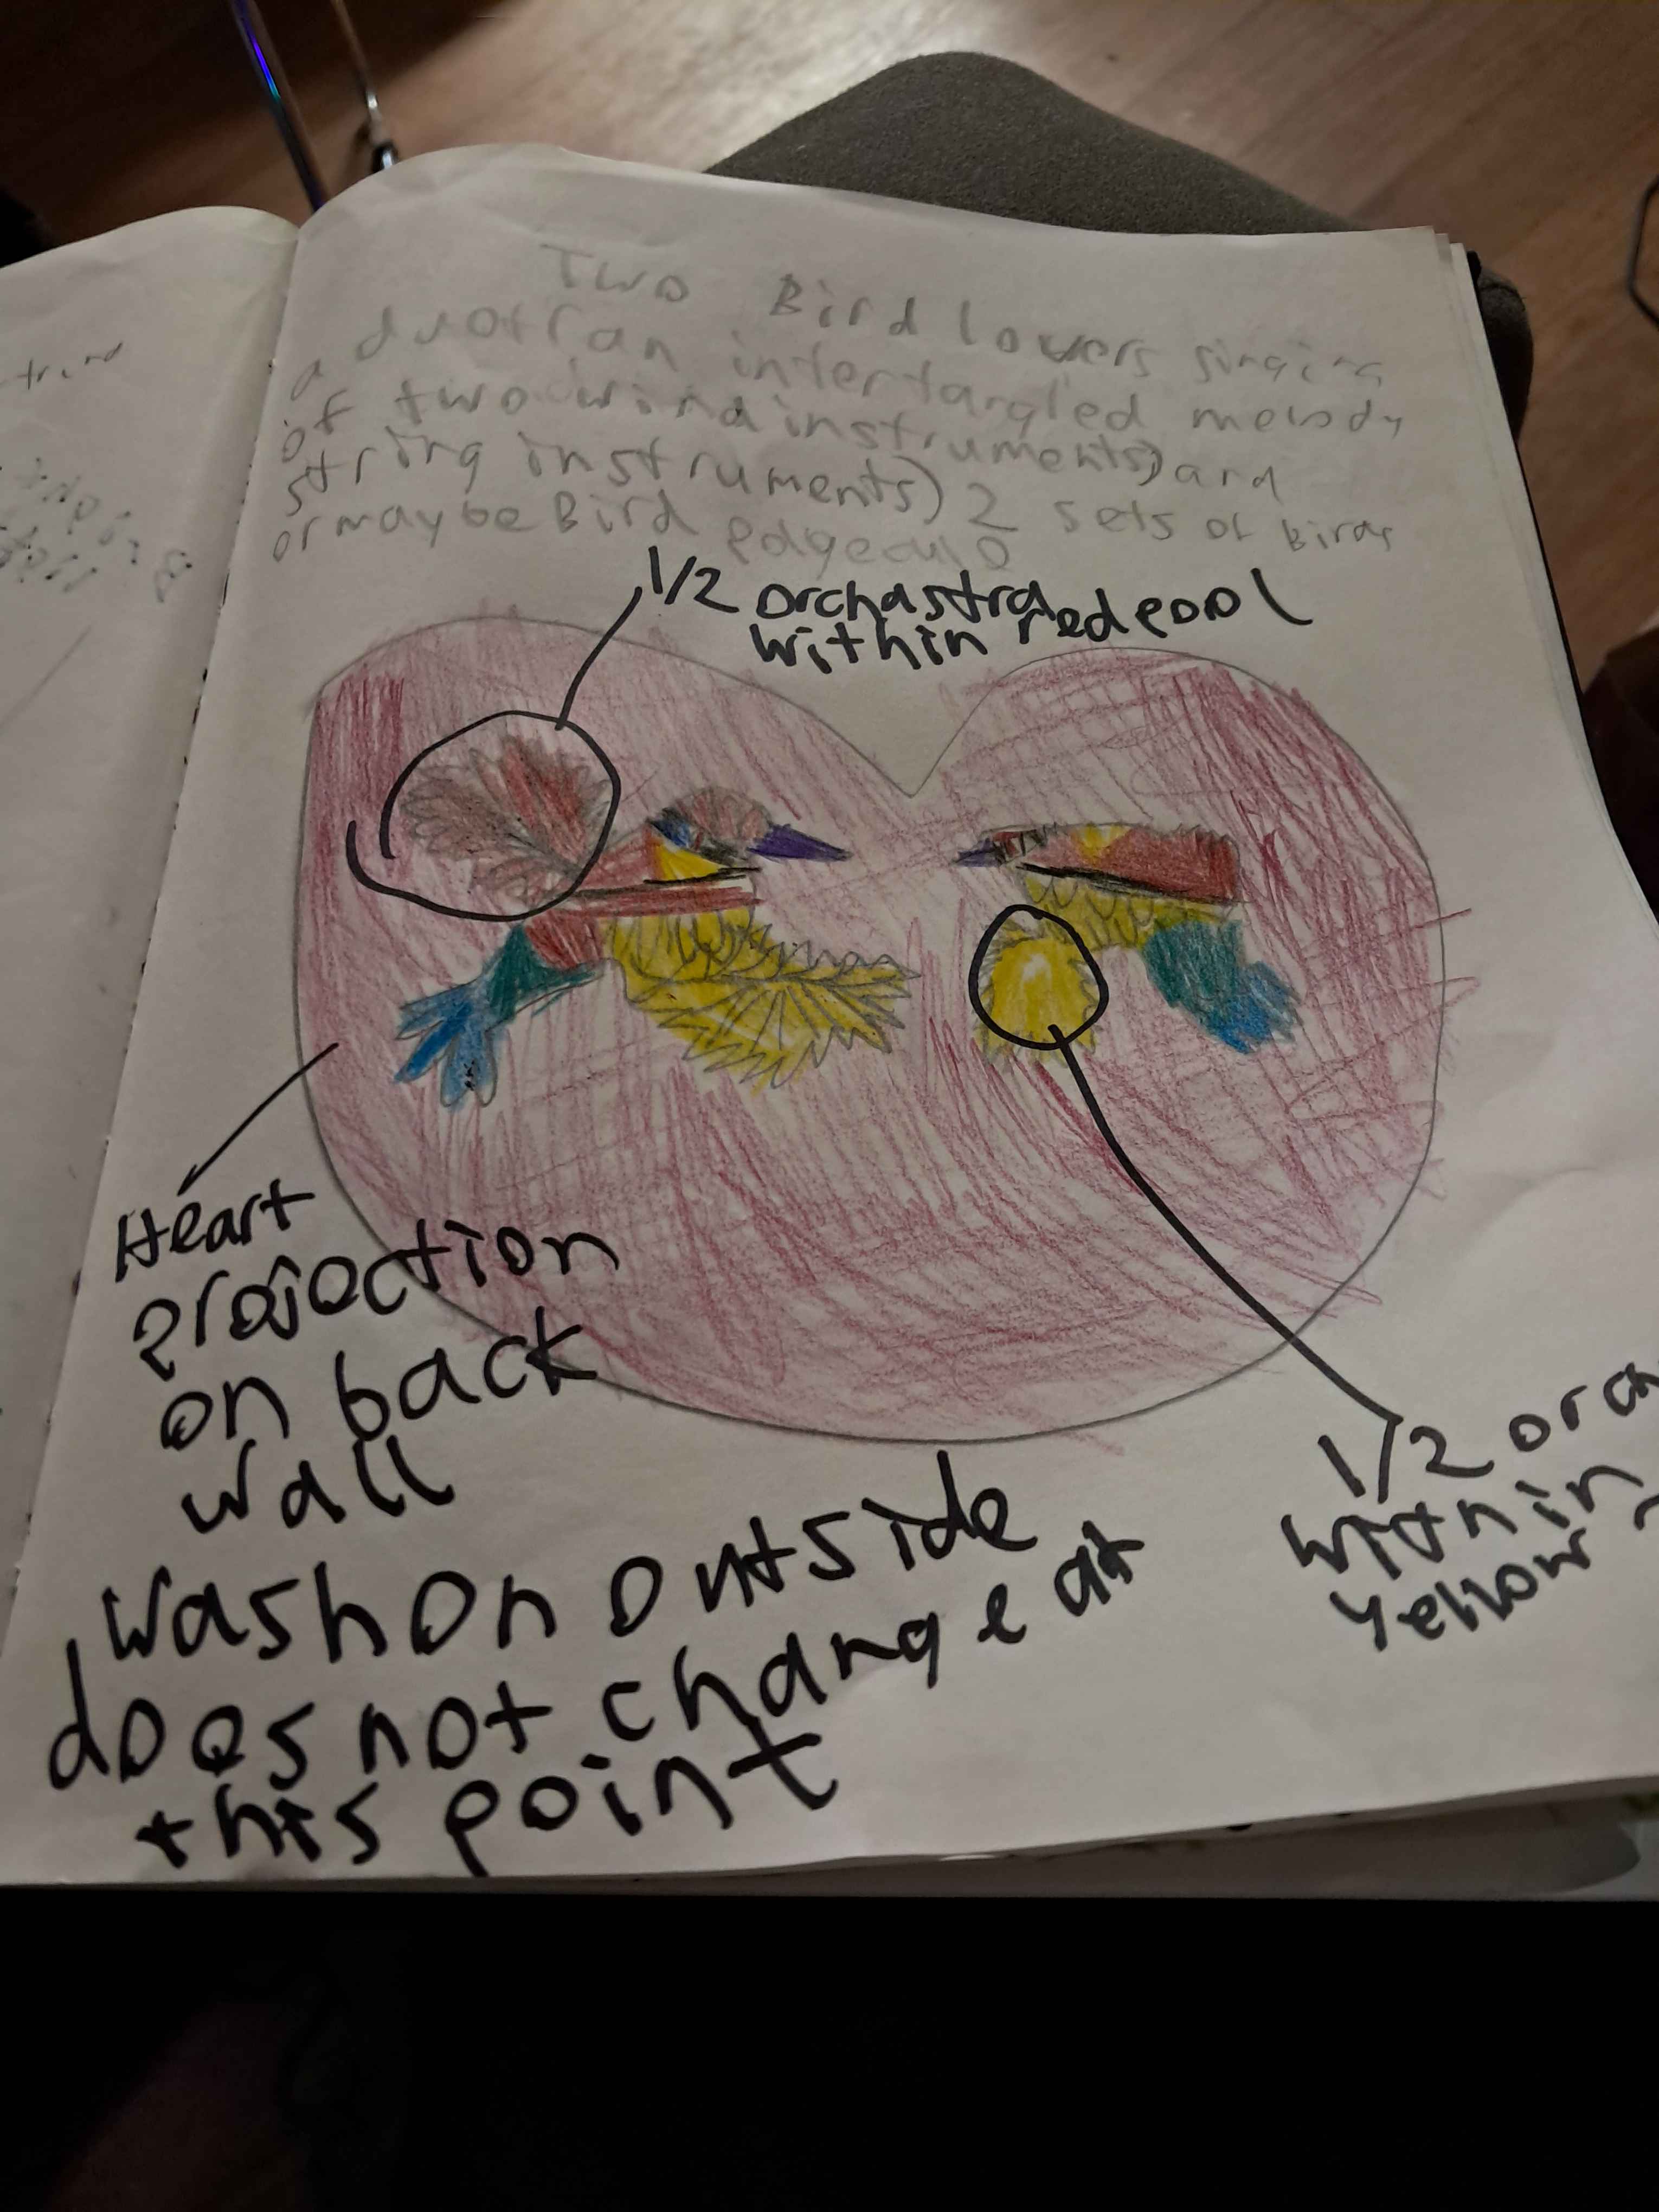 Two Bird lovers singing
a duet(an intertangled melody
of two wind instruments) and
string instruments) 2 sets of Birds
or maybe Bird
1/2 orchastra
within red pool
Heart
projection
on back
wall
1/2 orch
within
yellow
wash on outside
does not change at
this point
trind